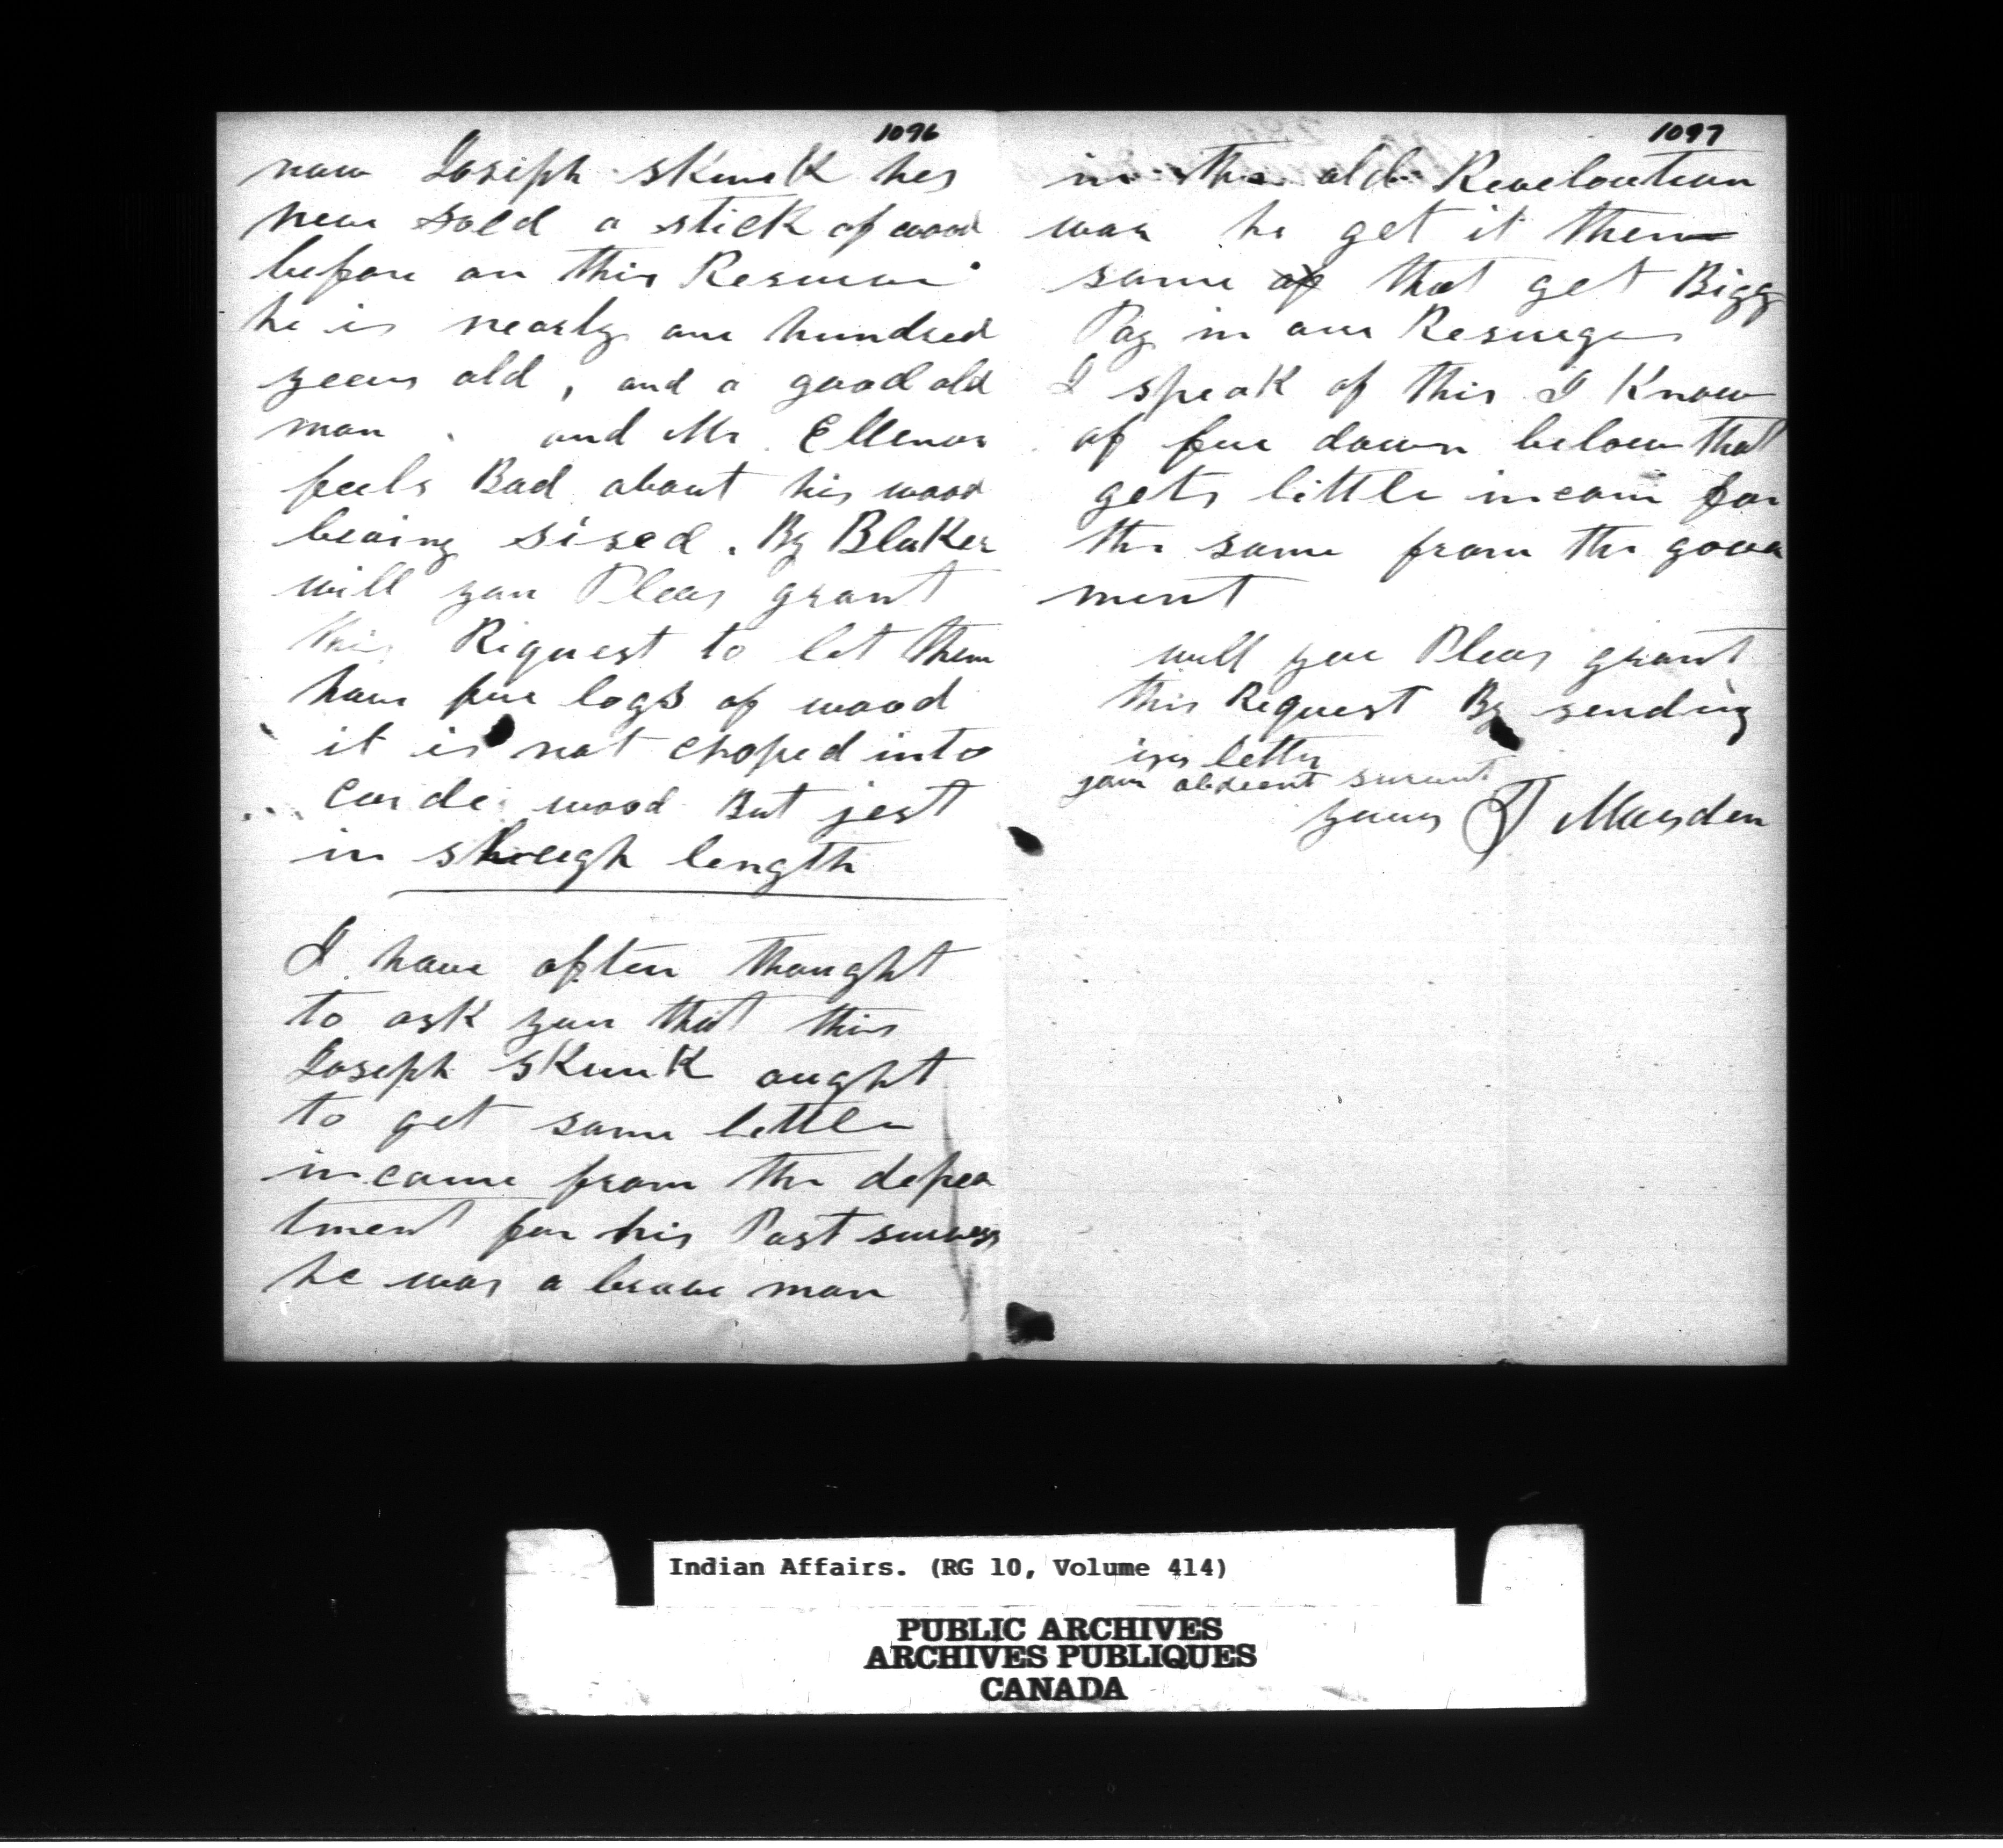 1096
now Joseph Skunk hes
never sold a stick of wood
before on this Reserve
he is nearly one hundred
years old, and a good old
man. and Mr. Ellenor
feels Bad about his wood
beaing sised. By Blaker
will you Pleas grant
this Riquest to let them
have few logs of wood
it is not choped into
corde wood But jest
in slough length
I have often thought
to ask you that this
Joseph Skunk ought
to get some little
income from the depar
tment for his Past
he was a brave man
1097
in the old Reveloution
war he get it then
some of that get Bigg
Pay in our
I speak of this I Know
of few down below that
gets little incom for
the same from the gover
ment
will you Pleas grant
this Request By sending
letter
your obdient servent
yours J Marsden
Indian Affairs. (RG 10, Volume 414)
PUBLIC ARCHIVES
ARCHIVES PUBLIQUES
CANADA